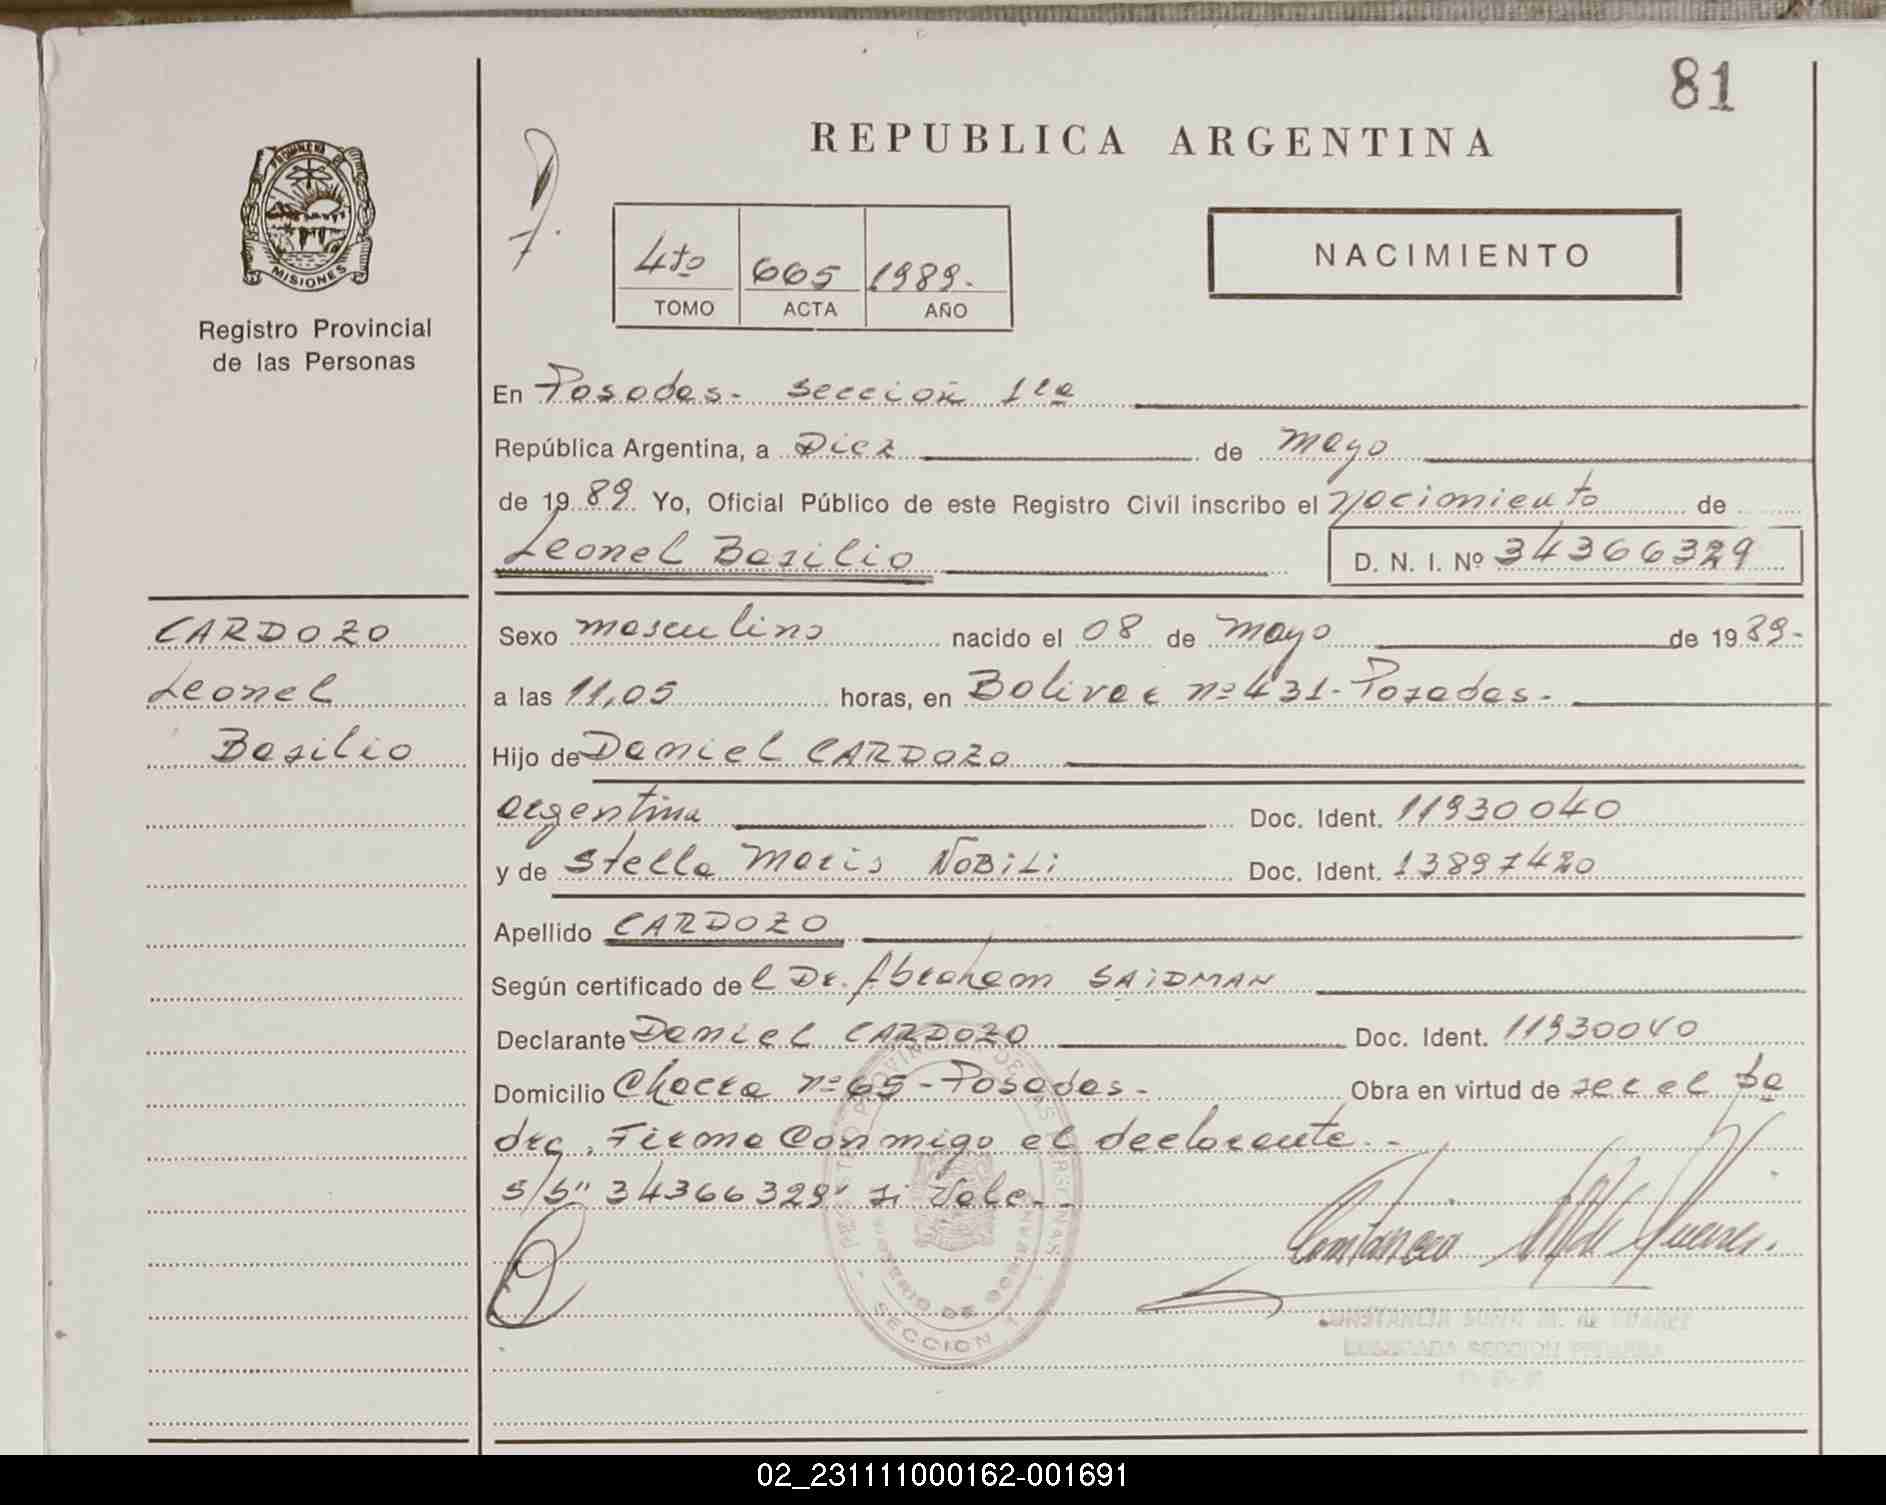 81
REPUBLICA ARGENTINA
PROVINCIA DE
MISIONES
Registro Provincial
de las Personas
4to 665 1989.-
TOMO ACTA AÑO
NACIMIENTO
En Posadas.- seccion 1ra
República Argentina, a Diez de mayo
de 1989. Yo, Oficial Público de este Registro Civil inscribo el nacimiento de
Leonel Basilio D. N. I. Nº 34366329
CARDOZO
Leonel
Basilio
Sexo masculino nacido el 08 de mayo de 1989.-
a las 11,05 horas, en Bolivar nº 431- Posadas.-
Hijo de Daniel CARDOZO
argentina Doc. Ident. 11930040
y de Stella Maris NOBILI Doc. Ident. 13897420
Apellido CARDOZO
Según certificado del Dr. Abraham SAIDMAN
Declarante Daniel CARDOZO Doc. Ident. 11930040
Domicilio Chacra nº 65 - Posadas.- Obra en virtud de ser el pa
dre. Firma conmigo el declarante.-
s/b" 34366329" si Vale.-
REGISTRO PROVINCIAL DE LAS PERSONAS
MINISTERIO DE GOBIERNO
SECCION 1
02_231111000162-001691